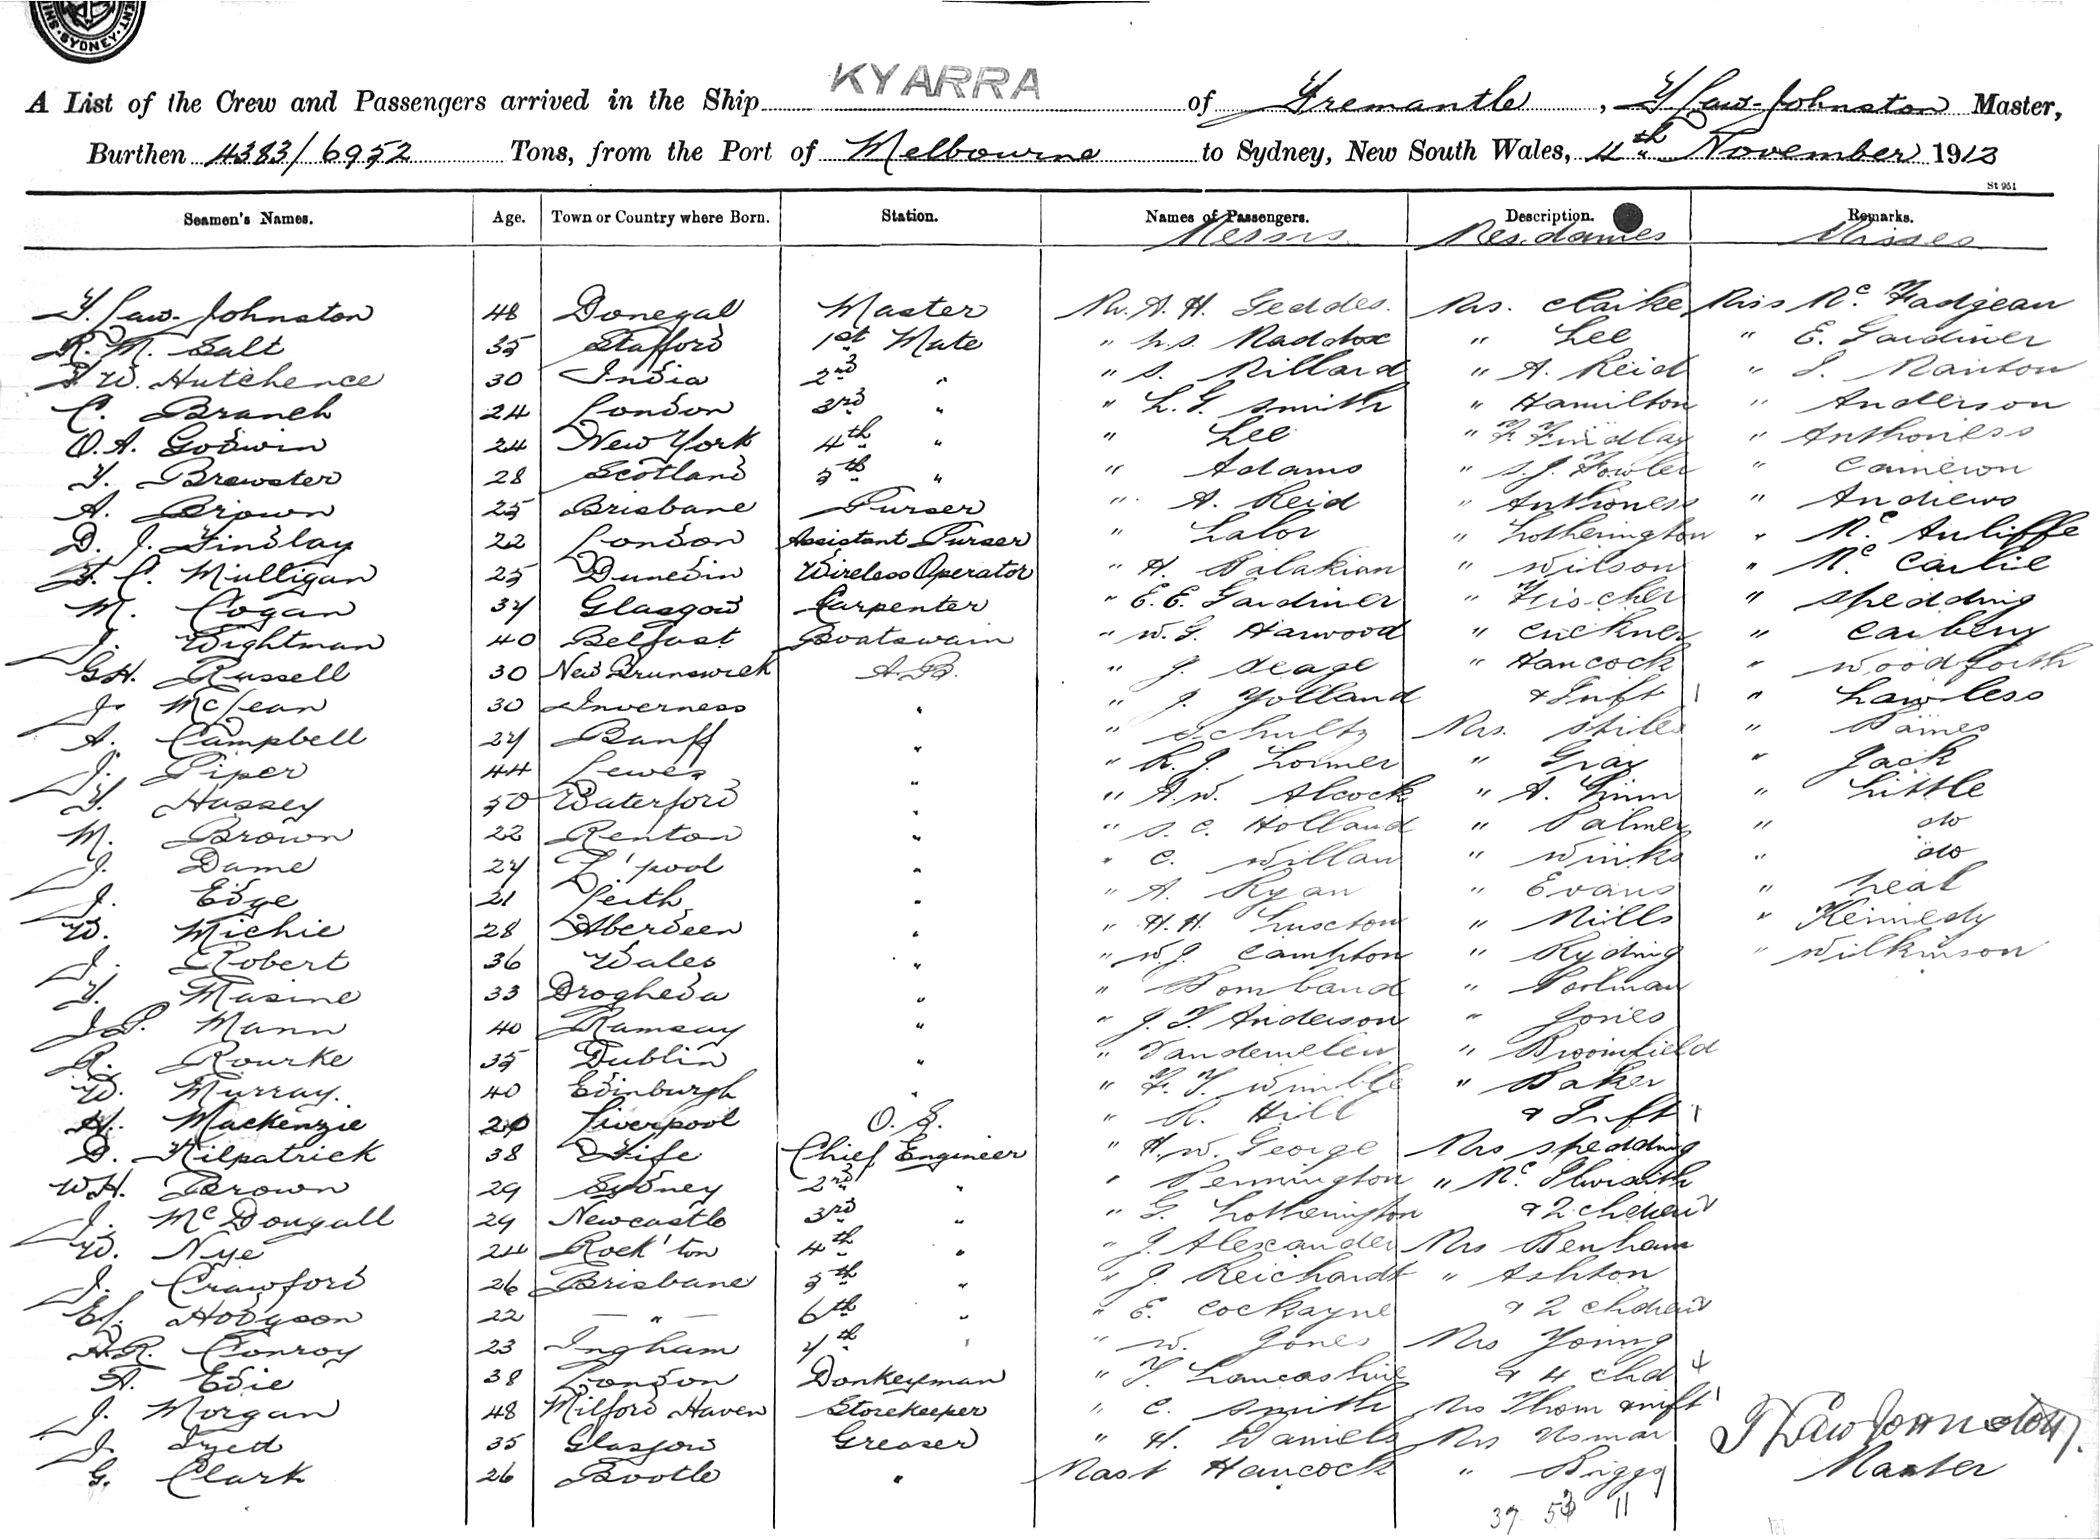 SYDNEY
KYARRA
A List of the Crew and Passengers arrived in the Ship of Fremantle, Law-Johnston Master,
Burthen 4383/6952 Tons, from the Port of Melbourne to Sydney, New South Wales, 4th November 1912
St 951
Seamen's Names. Age. Town or Country where Born. Station. Names of Passengers. Description. Remarks.
Messrs Mesdames Misses
Law-Johnston 48 Donegal Master Mr. A. H. Geddes. Mrs. Clarke Miss Mc Fadgean
R. M. Salt 35 Stafford 1st Mate " Maddox " Lee " E. Gardiner
W. Hutchence 30 India 2nd " " S. Millard " A. Reid " Manton
C. Branch 24 London 3rd " " L. G. Smith " Hamilton " Anderson
O. A. Godwin 24 New York 4th " " Lee " F. Findlay " Anthoness
T. Brewster 28 Scotland 5th " " Adams " S. J. Fowler " Cameron
A. Brown 25 Brisbane Purser " A. Reid " Anthoness " Andrews
D. J. Findlay 22 London Assistant Purser " Lalor " Lotherington " Mc Auliffe
C. Mulligan 25 Dunedin Wireless Operator " H. Balakian " Wilson " Mc Carlie
M. Cogan 37 Glasgow Carpenter " E. E. Gardiner " Fischer " Spedding
J. Wightman 40 Belfast Boatswain " W. G. Harwood " Cuckney " Carbery
G.H. Russell 30 New Brunswick A.B. " J. Seage " Hancock " Woodforth
J. McLean 30 Inverness " " J. Yolland & Inft 1 " Lawless
A. Campbell 27 Banff " " Schultz Mrs. Stiles " Barnes
J. Piper 44 Lewes " " R. J. Lormer " Gray " Jack
T. Hassey 50 Waterford " " A. W. Alcock " A. Linn " Little
M. Brown 22 Renton " " S. C. Holland " Palmer " do
J. Dame 27 L'pool " " C. Willan " Winks " do
J. Edge 21 Leith " " A. Ryan " Evans " Neal
W. Michie 28 Aberdeen " " H. H. Luscton " Mills " Kennedy
J. Robert 36 Wales " " W. J. Campton " Ryding " Wilkinson
T. Masine 33 Drogheda " " Pombaud " Poolman
J. P. Mann 40 Ramsay " " J. T. Anderson " Jones
R. Rourke 35 Dublin " " Vandemelen " Broomfield
W. Murray. 40 Edinburgh " " F. T. Wimble " Baker
H. Mackenzie 20 Liverpool O.S. " R. Hill & Inft 1
D. Kilpatrick 38 Fife Chief Engineer " H. W. George Mrs Spedding
W.H. Brown 29 Sydney 2nd " " Pennington " Mc Ilwraith
J. Mc Dougall 29 Newcastle 3rd " " G. Lotherington & 2 chdren 2
W. Nye 24 Rock'ton 4th " " J. Alexander Mrs Benham
J. Crawford 26 Brisbane 5th " " J. Reichardt " Ashton
E.J. Hodgson 22 — " — 6th " " E. Cockayne & 2 chdren 2
H.R. Conroy 23 Ingham 7th " " W. Jones Mrs Young
A. Edie 38 London Donkeyman " T. Lancashire & 4 chd 4
J. Morgan 48 Milford Haven Storekeeper " C. Smith Mrs Thom & inft 1
J. 35 Glasgow Greaser " H. Daniels Mrs Usmar
G. Clark 26 Bootle " Mast Hancock " Briggs
Law Johnston
Master
37 53 11